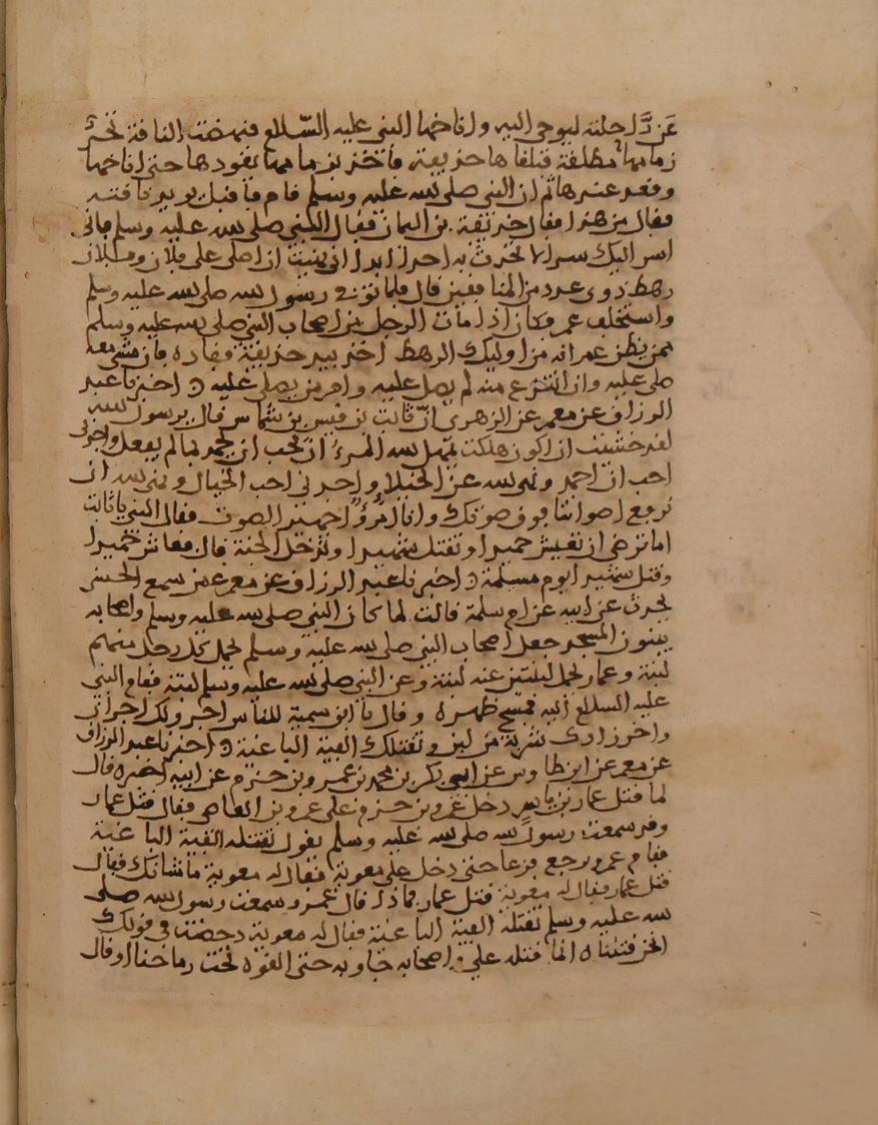 عن راحلته ليوحى اليه واناخها النبي عليه السلام فنهضت الناقة تجر
زمامها مطلقة فتلقاها حذيفة فاخذ بزمامها يقودها حتى اناخها
وقعد عندها ثم ان النبي صلى الله عليه وسلم قام فاقبل يريد ناقته
فقال من هذا فقال حذيفة بن اليمان فقال النبي صلى الله عليه وسلم فاني
اسر اليك سرا لا تحدث به احدا ابدا اني نهيت ان اصلي على فلان وفلان
رهط ذوي عدد من المنافقين قال فلما توفي رسول الله صلى الله عليه وسلم
واستخلف عمر فكان اذا مات الرجل من اصحاب النبي صلى الله عليه وسلم
ممن يظن عمر انه من اوليك الرهط اخذ بيد حذيفة فقاده فان مشى معه
صلى عليه وان انتزع منه لم يصل عليه وامر من يصلي عليه اخبرنا عبد
الرزاق عن معمر عن الزهري ان ثابت بن قيس بن شماس قال يرسول الله
لقد خشيت ان اكون هلكت ينهى الله المرء ان يحب ان يحمد بما لم يفعل واجدني
احب ان احمد ونهى الله عن الخيلاء واجدني احب الجمال ونهى الله ان
نرفع اصواتنا فوق صوتك وانا امرؤ جهير الصوت فقال النبي يا ثابت
اما ترضى ان تعيش حميدا وتقتل شهيدا وتدخل الجنة قال فعاش حميدا
وقتل شهيدا يوم مسيلمة اخبرنا عبد الرزاق عن معمر عمن سمع الحسن
يحدث عن امه عن ام سلمة قالت لما كان النبي صلى الله عليه وسلم واصحابه
يبنون المسجد جعل اصحاب النبي صلى الله عليه وسلم يحمل كل رجل منهم
لبنة وعمار يحمل لبنتين عنه لبنة وعن النبي صلى الله عليه وسلم لبنة فقام النبي
عليه السلام اليه فمسح ظهره وقال يا ابن سمية للناس اجر ولك اجران
واخر زادك شربة من لبن وتقتلك الفية الباغية اخبرنا عبد الرزاق
عن معمر عن ابن طاوس عن ابي بكر بن محمد بن عمرو بن حزم عن ابيه اخبره قال
لما قتل عمار بن ياسر دخل عمرو بن حزم على عمرو بن العاصي فقال قتل عمار
وقد سمعت رسول الله صلى الله عليه وسلم يقول تقتله الفية الباغية
فقام عمرو يرجع فزعا حتى دخل على معوية فقال له معوية ما شانك فقال
قتل عمار فقال له معوية قتل عمار فماذا قال عمرو سمعت رسول الله صلى
الله عليه وسلم تقتله الفية الباغية فقال له معوية دحضت في قولك
انحن قتلناه انما قتله علي واصحابه جاوا به حتى القوه تحت رماحنا او قال